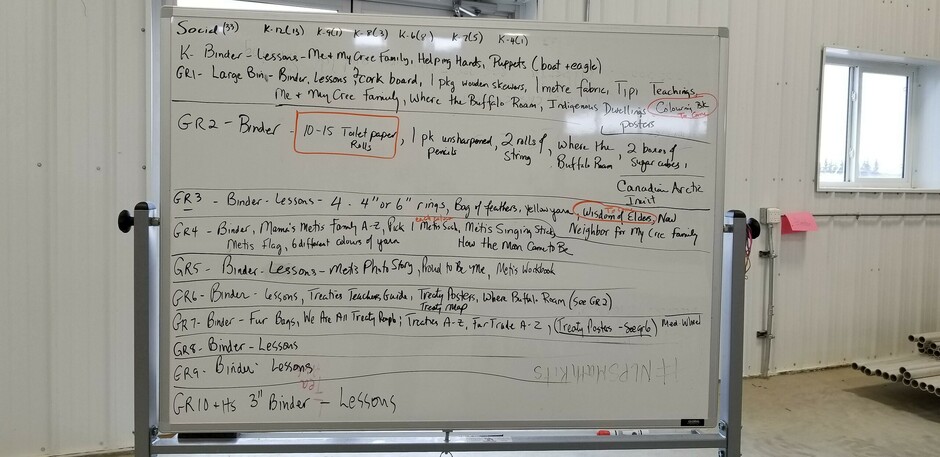 Social (33) K-12(13) K-9(1) K-8(3) K-6(8) K-7(5) K-4(1)
K- Binder - Lessons - Me + My Cree Family, Helping Hands, Puppets (boat + eagle)
GR1- Large Bin - Binder, Lessons, cork board, 1 pkg wooden skewers, 1 metre fabric, Tipi Teachings,
Me + My Cree Family, Where the Buffalo Roam, Indigenous Dwellings Colouring BK
posters
GR2 - Binder - 10-15 Toilet paper Rolls, 1 pk unsharpened pencils, 2 rolls of String, Where the Buffalo Roam, 2 boxes of Sugar cubes,
Canadian Arctic
Inuit
GR3 - Binder - Lessons - 4 - 4" or 6" rings, Bag of feathers, Yellow yarn, Wisdom of Elders, New
Neighbor for My Cree Family
GR4 - Binder, Mama's Metis Family A-Z, Pick 1 Metis Sash, Metis Singing Sticks
Metis flag, 6 different colours of yarn How the Moon Came to Be
GR5 - Binder - Lessons - Metis Photo Story, Proud to Be Me, Metis Workbook
GR6 - Binder - Lessons, Treaties Teachers Guide, Treaty Posters, Where Buffalo Roam (See GR2)
Treaty Map
GR7 - Binder - Fur Bags, We Are All Treaty People, Treaties A-Z, Fur Trade A-Z, (Treaty Posters - See gr6) Med. Wheel
GR8 - Binder - Lessons
GR9 - Binder - Lessons
Tea
#NLPSMathKits
GR10 + HS 3" Binder - Lessons